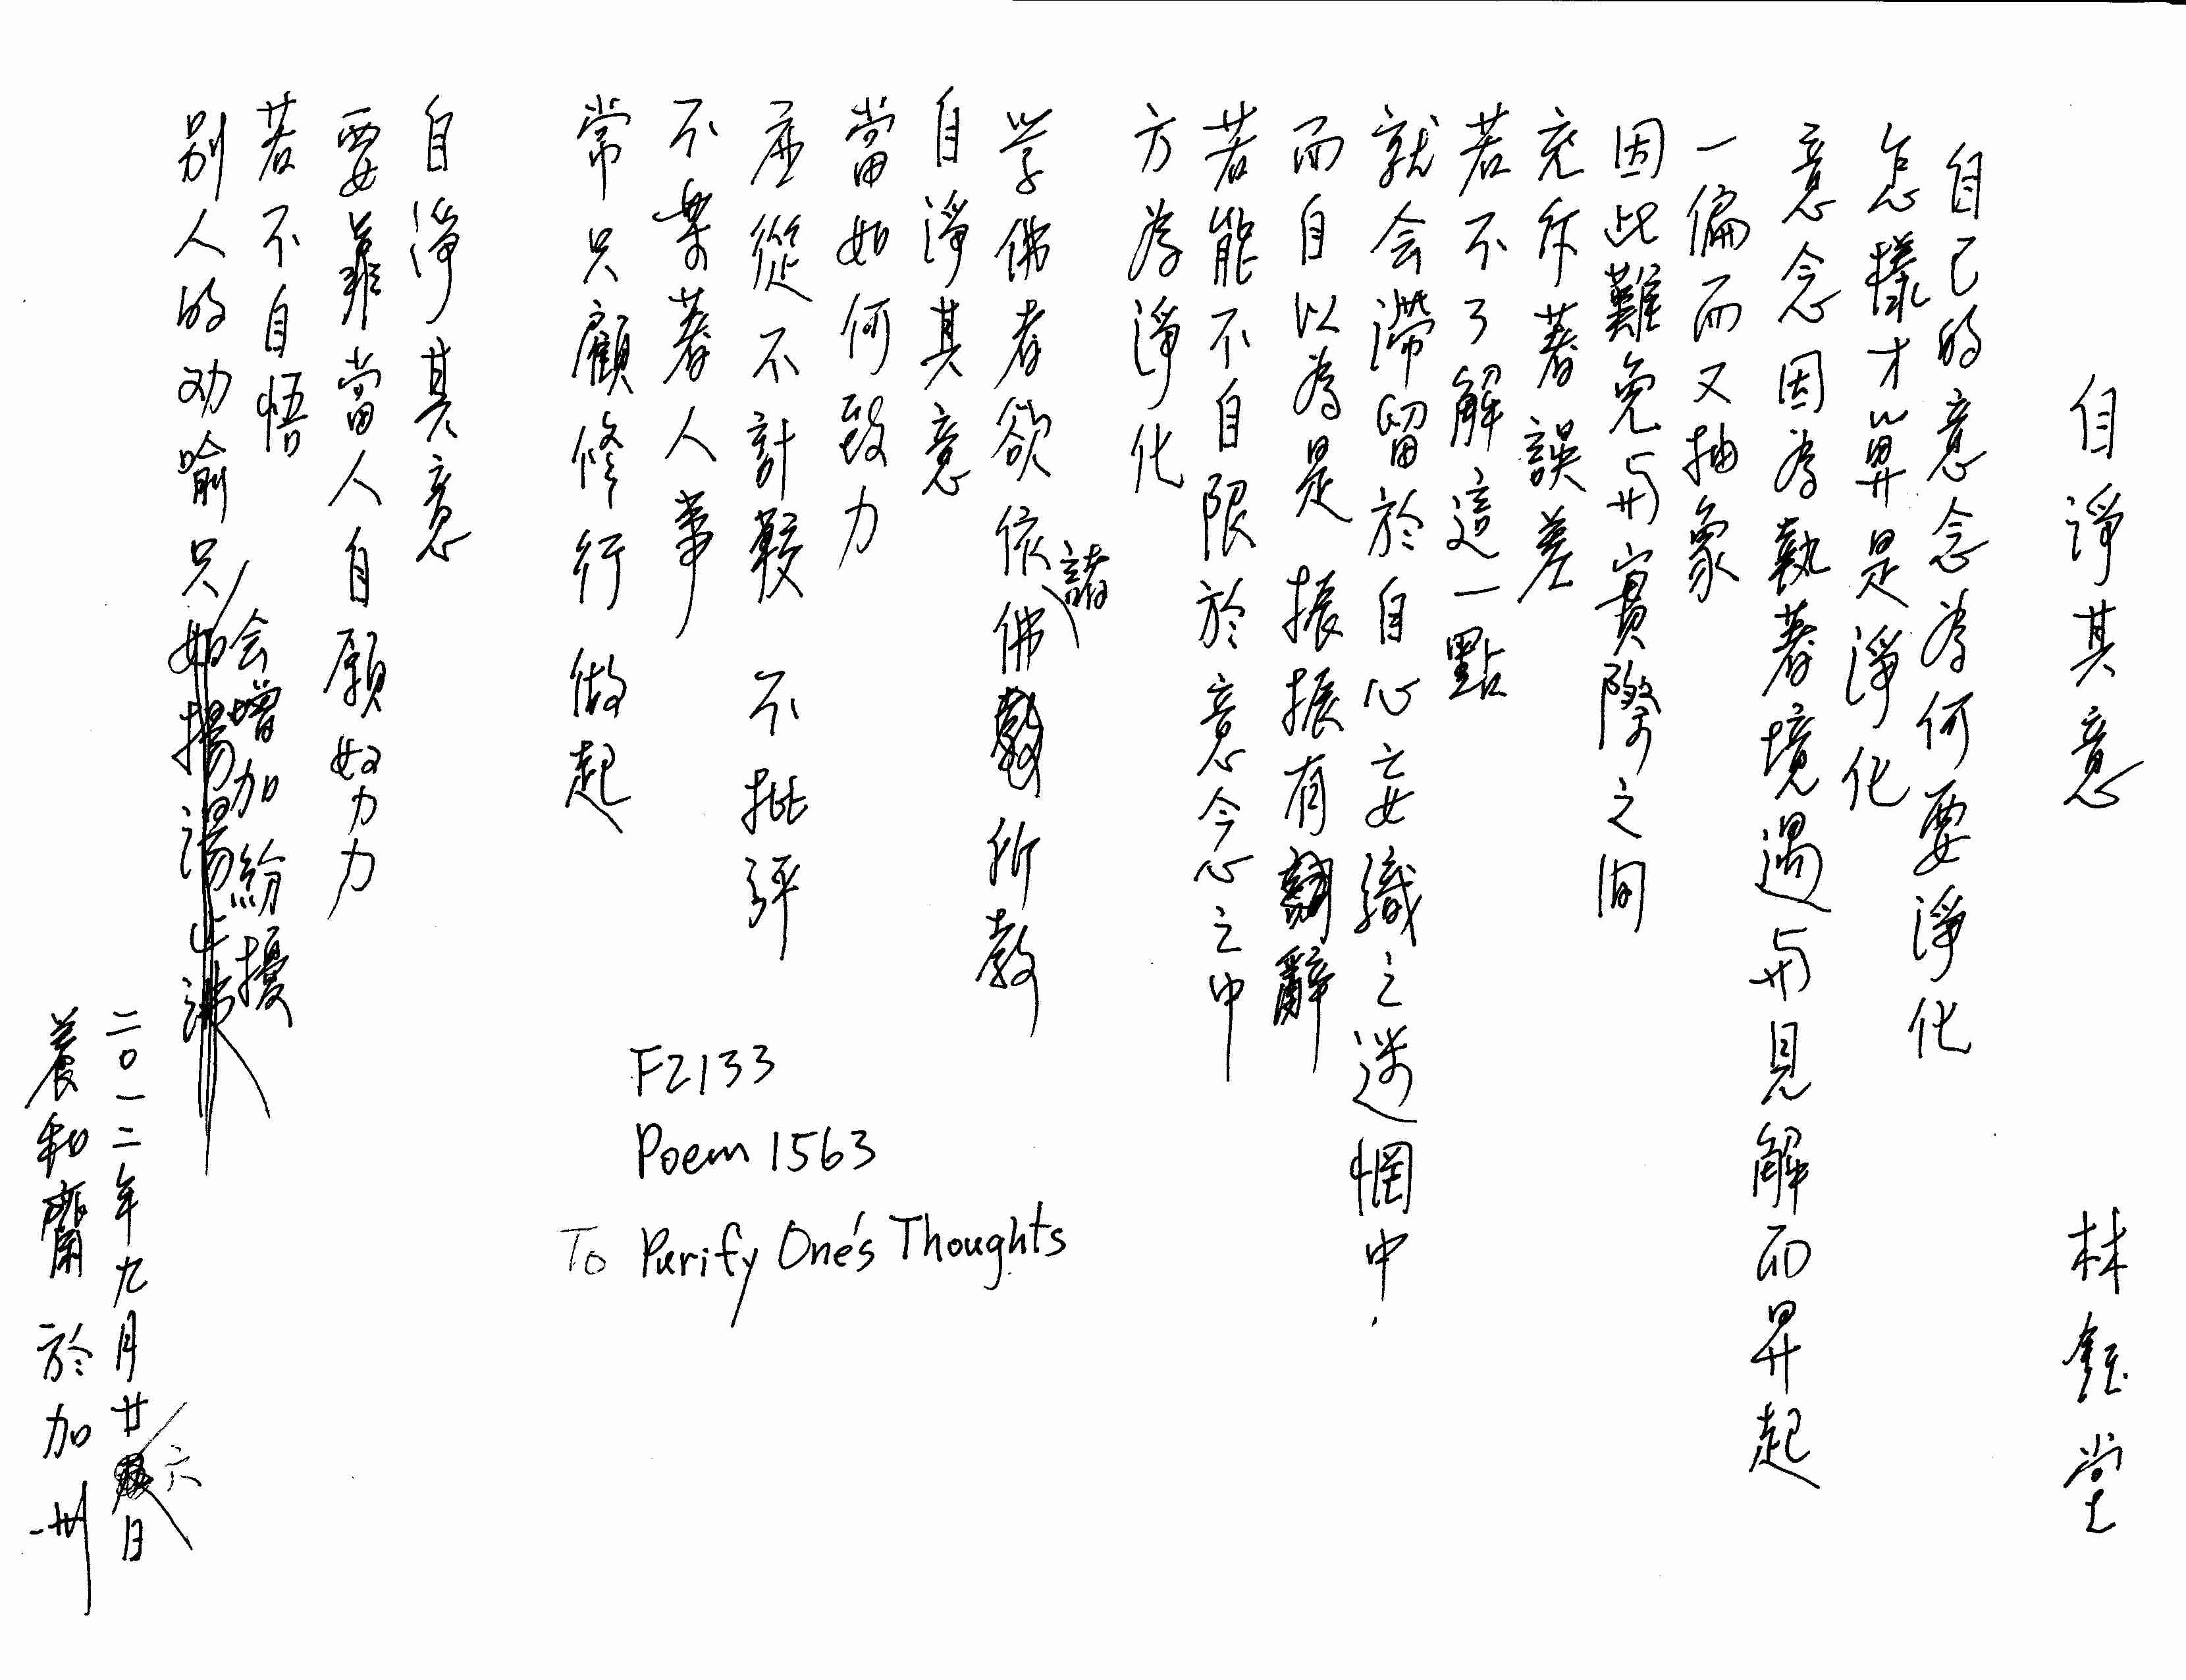 自淨其意　林鈺堂
自己的意念為何要淨化
怎樣才算是淨化
意念因為執著境遇与見解而昇起
一偏而又抽象
因此難免与實際之间
充斥著誤差
若不了解這一點
就会滯留於自心妄織之迷惘中．
而自以為是　振振有辭
若能不自限於意念之中
方為淨化
学佛者欲依諸佛所教
自淨其意
當如何致力
應從不計較　不批評
不牽著人事
常只顧修行做起
自淨其意
要靠當人自願努力
若不自悟
別人的劝喻只会增加紛擾
二〇一二年九月廿六日
養和齋　於加州
F2133
Poem 1563
To Purify One's Thoughts